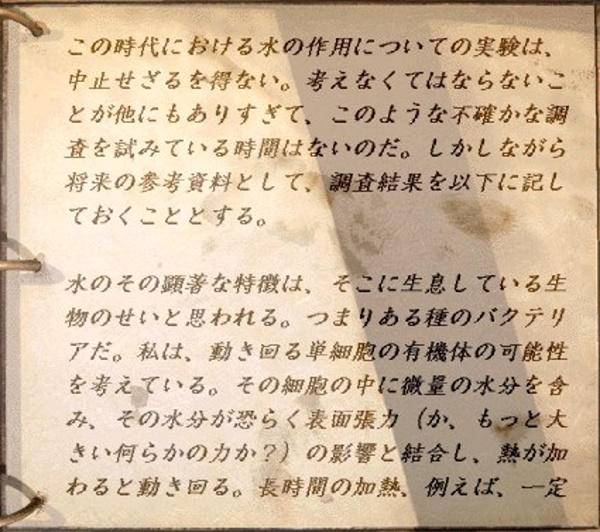 この時代における水の作用についての実験は、
中止せざるを得ない。考えなくてはならないこ
とが他にもありすぎて、このような不確かな調
査を試みている時間はないのだ。しかしながら
将来の参考資料として、調査結果を以下に記し
ておくこととする。
水のその顕著な特徴は、そこに生息している生
物のせいと思われる。つまりある種のバクテリ
アだ。私は、動き回る単細胞の有機体の可能性
を考えている。その細胞の中に微量の水分を含
み、その水分が恐らく表面張力（か、もっと大
きい何らかの力か？）の影響と結合し、熱が加
わると動き回る。長時間の加熱、例えば、一定